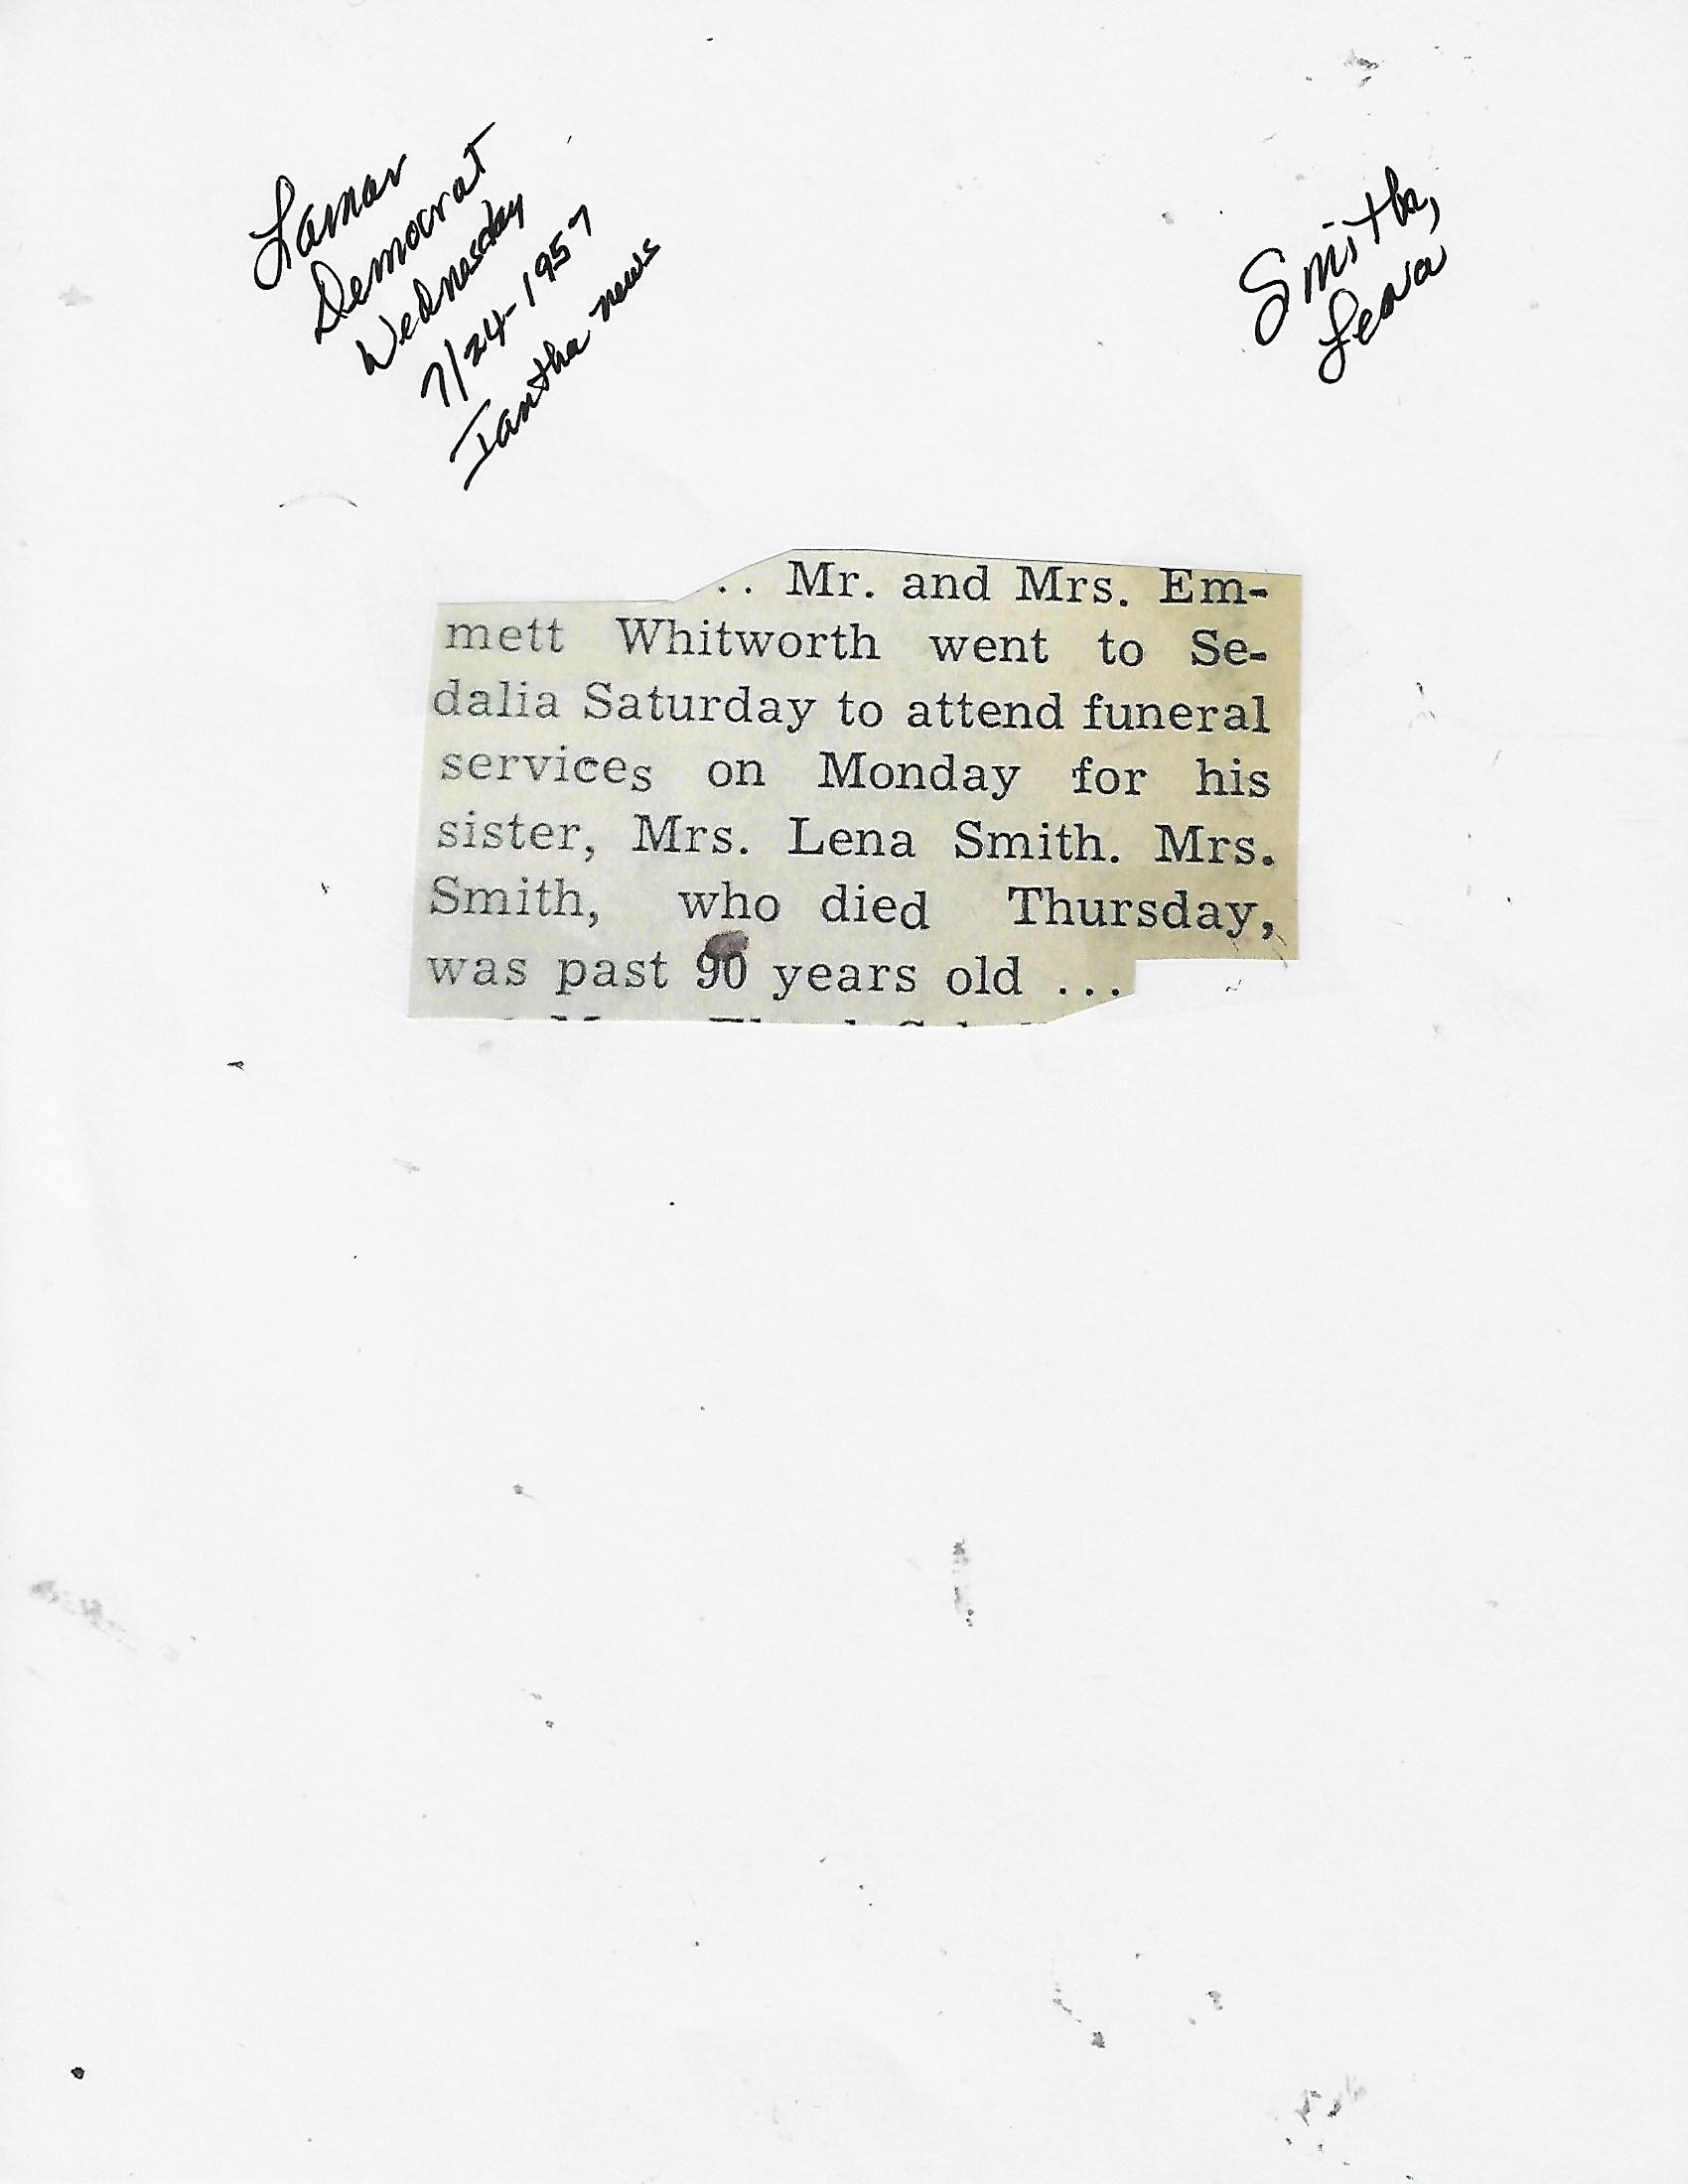 Lamar
Democrat
Wednesday
7/24-1957
Iantha news
Smith,
Lena
.. Mr. and Mrs. Em-
mett Whitworth went to Se-
dalia Saturday to attend funeral
services on Monday for his
sister, Mrs. Lena Smith. Mrs.
Smith, who died Thursday,
was past 90 years old ...